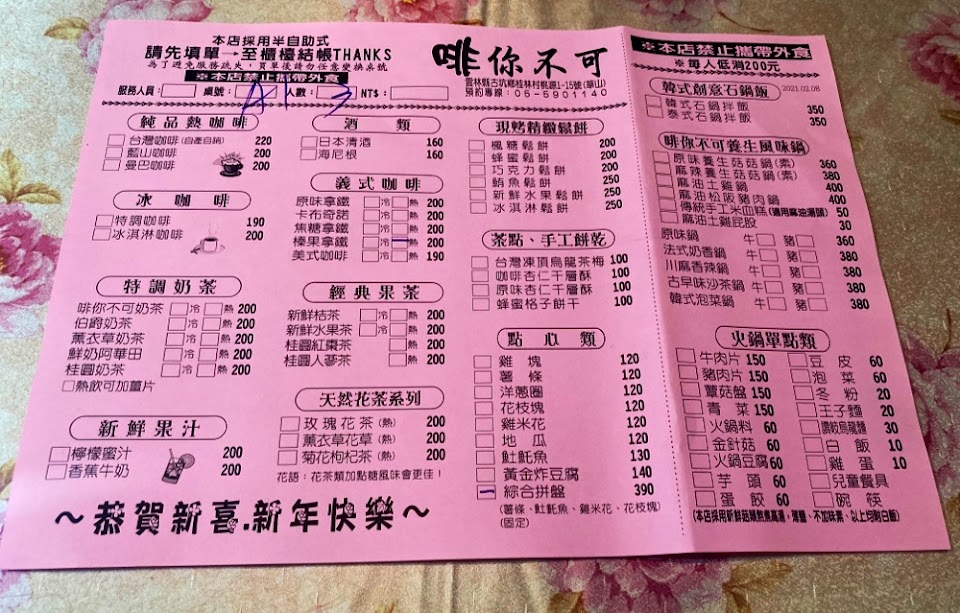 本店採用半自助式
請先填單→至櫃檯結帳THANKS
為了避免服務疏失，買單後請勿任意變換桌號
※本店禁止攜帶外食
服務人員： 桌號：A1 人數：3 NT$：
啡你不可
雲林縣古坑鄉桂林村桃源1-15號(華山)
預約專線：05-5901140
※本店禁止攜帶外食
※每人低消200元
純品熱咖啡
台灣咖啡(自產自銷) 220
藍山咖啡 200
曼巴咖啡 200
冰咖啡
特調咖啡 190
冰淇淋咖啡 200
特調奶茶
啡你不可奶茶 冷 熱 200
伯爵奶茶 冷 熱 200
薰衣草奶茶 冷 熱 200
鮮奶阿華田 冷 熱 200
桂圓奶茶 冷 熱 200
熱飲可加薑片
新鮮果汁
檸檬蜜汁 200
香蕉牛奶 200
酒類
日本清酒 160
海尼根 160
義式咖啡
原味拿鐵 冷 熱 200
卡布奇諾 冷 熱 200
焦糖拿鐵 冷 熱 200
榛果拿鐵 冷 熱 200
美式咖啡 冷 熱 190
經典果茶
新鮮桔茶 冷 熱 200
新鮮水果茶 冷 熱 200
桂圓紅棗茶 熱 200
桂圓人蔘茶 熱 200
天然花茶系列
玫瑰花茶(熱) 200
薰衣草花草(熱) 200
菊花枸杞茶(熱) 200
花語：花茶類加點糖風味會更佳！
～恭賀新喜.新年快樂～
現烤精緻鬆餅
楓糖鬆餅 200
蜂蜜鬆餅 200
巧克力鬆餅 200
鮪魚鬆餅 250
新鮮水果鬆餅 250
冰淇淋鬆餅 250
茶點、手工餅乾
台灣凍頂烏龍茶梅 100
咖啡杏仁千層酥 100
原味杏仁千層酥 100
蜂蜜格子餅干 100
點心類
雞塊 120
薯條 120
洋蔥圈 120
花枝塊 120
雞米花 120
地瓜 120
魠魠魚 130
黃金炸豆腐 140
綜合拼盤 390
(薯條、魠魠魚、雞米花、花枝塊)
(固定)
韓式創意石鍋飯 2021.02.08
韓式石鍋拌飯 350
泰式石鍋拌飯 350
啡你不可養生風味鍋
原味養生菇菇鍋(素) 360
麻辣養生菇菇鍋(素) 380
麻油土雞鍋 400
麻油松阪豬肉鍋 400
傳統手工米血糕(適用麻油湯頭) 50
麻油土雞屁股 30
原味鍋 牛 豬 360
法式奶香鍋 牛 豬 380
川麻香辣鍋 牛 豬 380
古早味沙茶鍋 牛 豬 380
韓式泡菜鍋 牛 豬 380
火鍋單點類
牛肉片 150
豬肉片 150
蕈菇盤 150
青菜 150
火鍋料 60
金針菇 60
火鍋豆腐 60
芋頭 60
蛋餃 60
豆皮 60
泡菜 60
冬粉 20
王子麵 20
讚岐烏龍麵 30
白飯 10
雞蛋 10
兒童餐具
碗筷